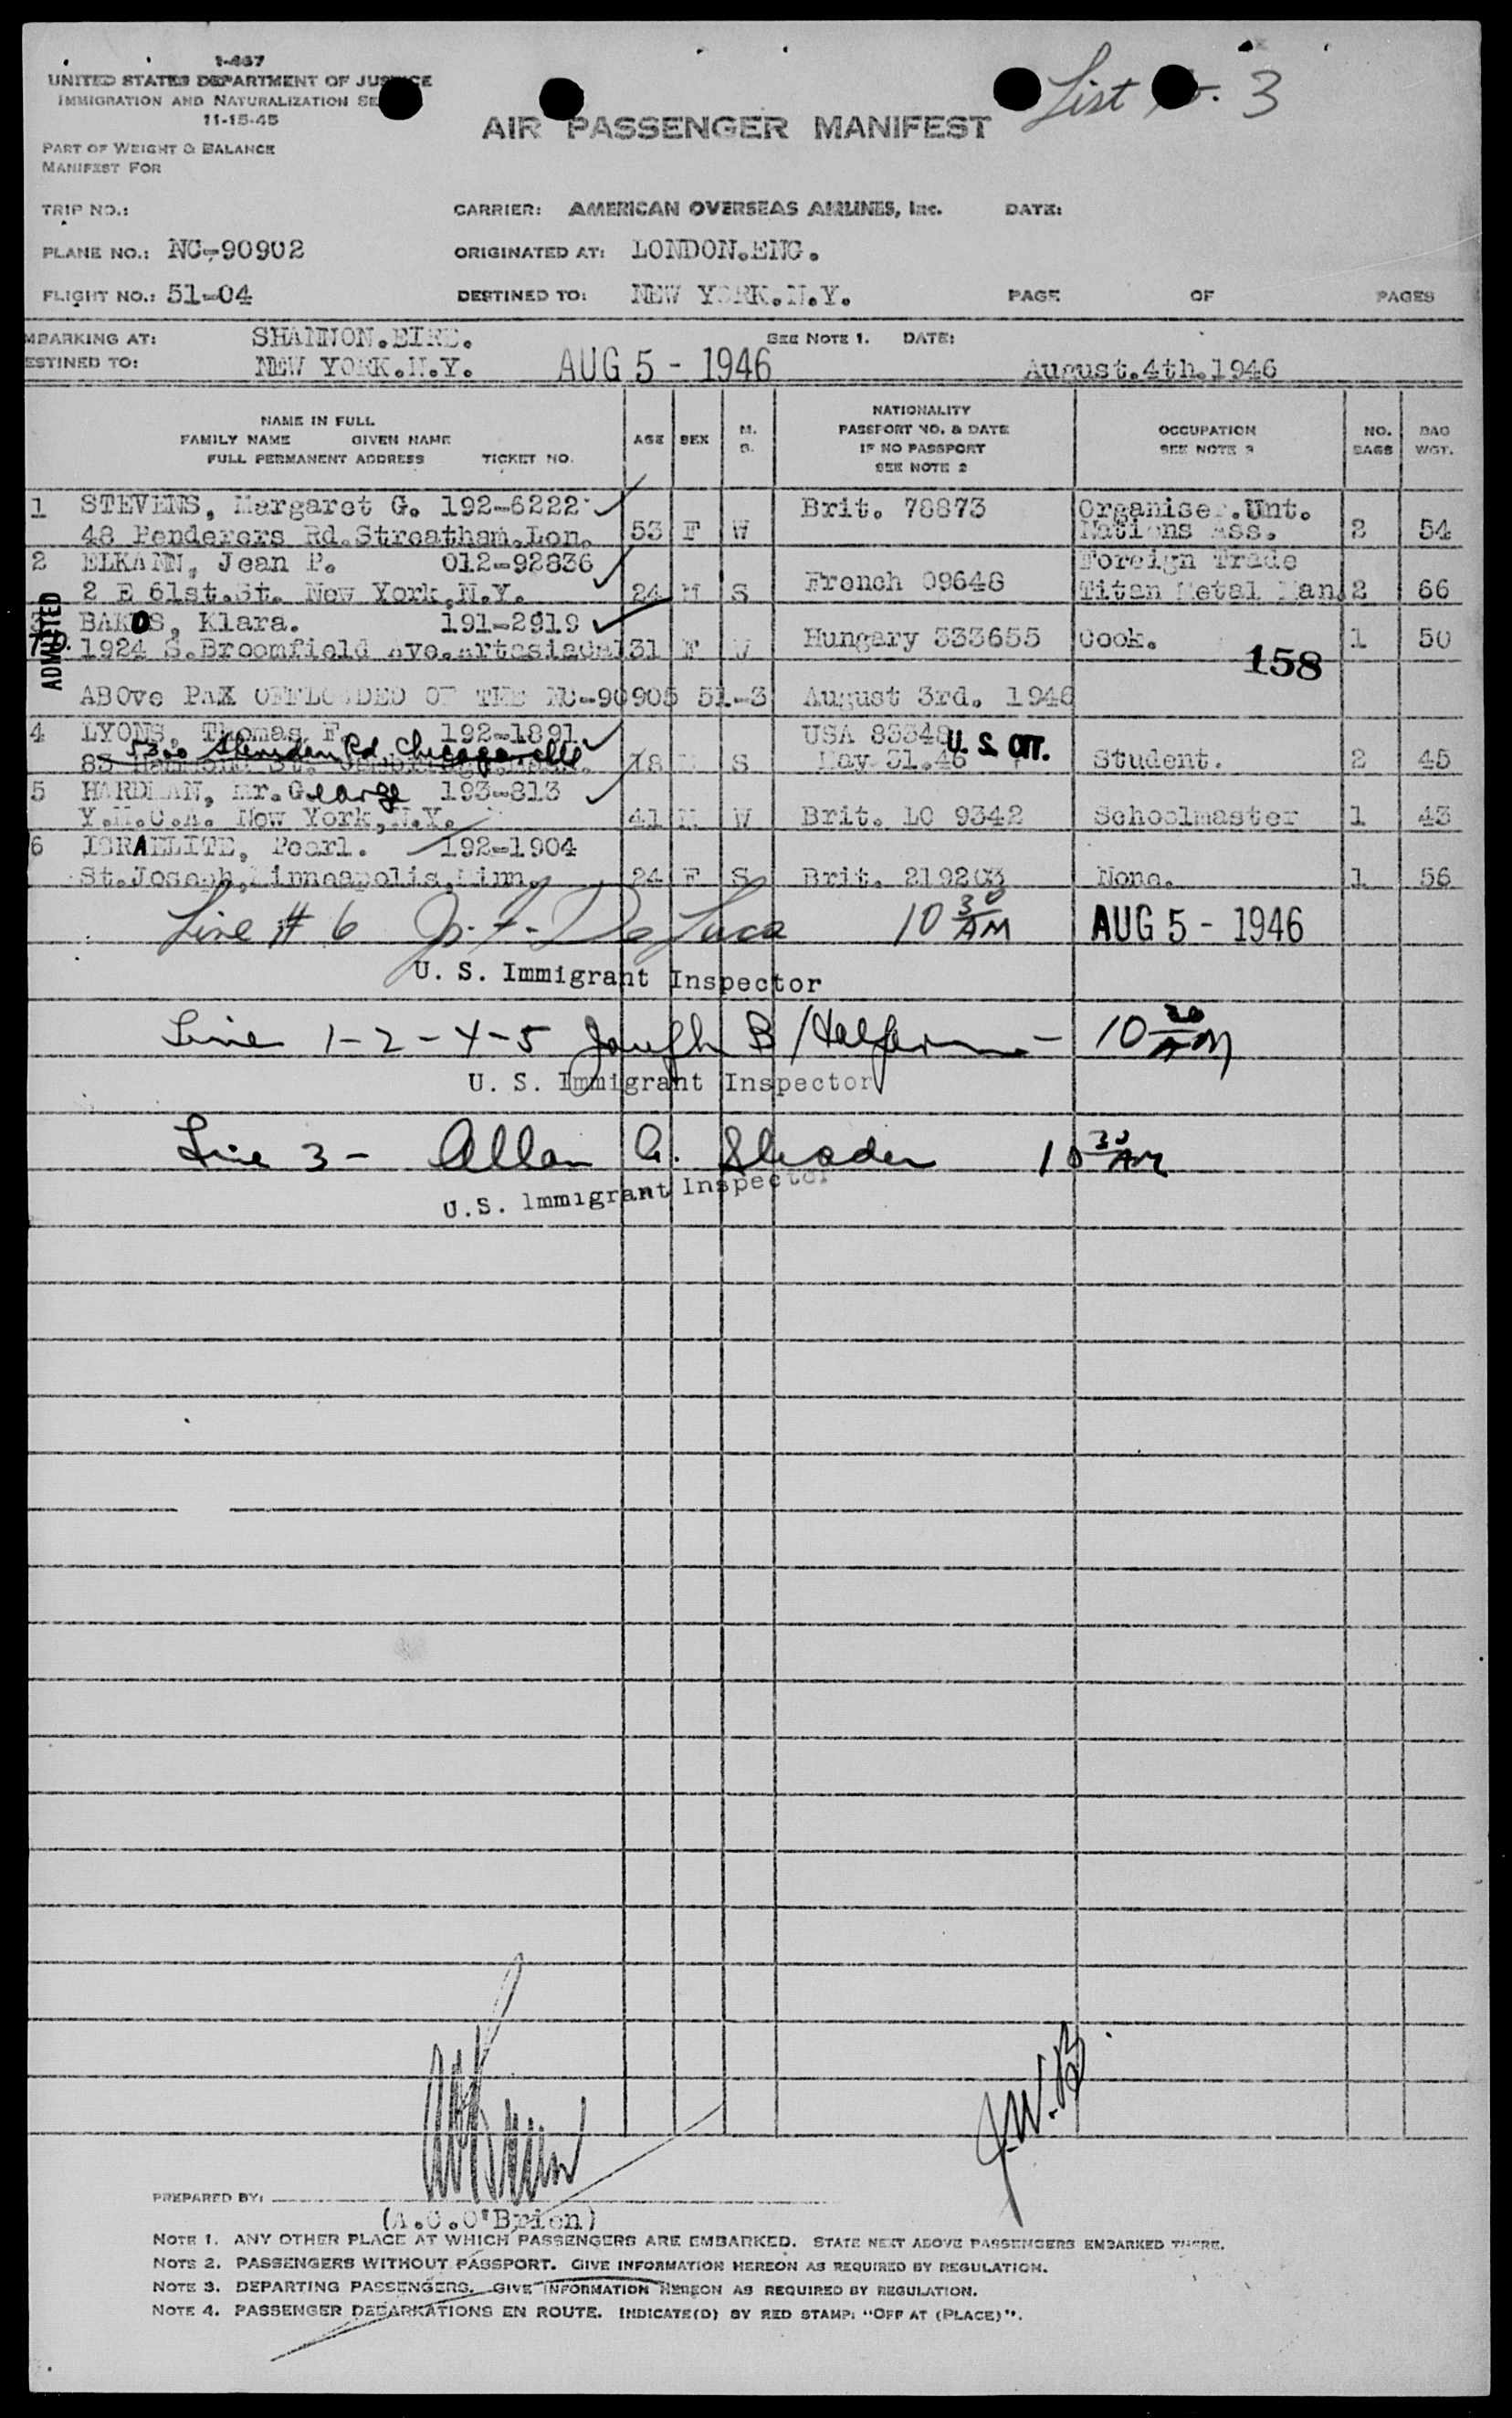 1-467
UNITED STATES DEPARTMENT OF JUSTICE
IMMIGRATION AND NATURALIZATION SE
11-15-45
List No. 3
AIR PASSENGER MANIFEST
PART OF WEIGHT & BALANCE
MANIFEST FOR
TRIP NO.: CARRIER: AMERICAN OVERSEAS AIRLINES, Inc. DATE:
PLANE NO.: NC-90902 ORIGINATED AT: LONDON.ENG.
FLIGHT NO.: 51-04 DESTINED TO: NEW YORK.N.Y. PAGE OF PAGES
MBARKING AT: SHANNON.EIRE. SEE NOTE 1. DATE:
ESTINED TO: NEW YORK.N.Y. AUG 5 - 1946 August.4th.1946
NAME IN FULL
FAMILY NAME GIVEN NAME
FULL PERMANENT ADDRESS TICKET NO.
AGE SEX M. S.
NATIONALITY
PASSPORT NO. & DATE
IF NO PASSPORT
SEE NOTE 2
OCCUPATION
SEE NOTE 3
NO. BAGS
BAG WGT.
1 STEVENS, Margaret G. 192-6222 Brit. 78873 Organiser.Unt.
48 Penderers Rd.Streatham.Lon. 53 F W Nations Ass. 2 54
2 ELKANN, Jean P. 012-92836 Foreign Trade
2 E 61st.St. New York,N.Y. 24 M S French 09648 Titan Metal Man 2 66
3 BAKOS, Klara. 191-2919
1924 S.Broomfield Ave.Artesia 31 F W Hungary 333655 Cook. 1 50
ADMITTED
158
ABOve PAX OFFLOADED OF THE NC-90905 51-3 August 3rd. 1946
4 LYONS, Thomas F. 192-1891 USA 83348 U. S. CIT.
Chicago Ill
18 M S May 31.46 Student. 2 45
5 HARDMAN, Mr.George 193-813
Y.M.C.A. New York,N.Y. 41 M W Brit. LO 9342 Schoolmaster 1 43
6 ISRAELITE, Pearl. 192-1904
St.Joseph,Minneapolis,Minn. 24 F S Brit. 219203 None. 1 56
Line # 6 De Luca 10 30 AM AUG 5 - 1946
U. S. Immigrant Inspector
Line 1-2-4-5 Joseph B 10 30 AM
U. S. Immigrant Inspector
Line 3 - Allan G. 10 30 AM
U.S. Immigrant Inspector
J.W.B.
PREPARED BY:
(A.C.O'Brien)
NOTE 1. ANY OTHER PLACE AT WHICH PASSENGERS ARE EMBARKED. STATE NEXT ABOVE PASSENGERS EMBARKED THERE.
NOTE 2. PASSENGERS WITHOUT PASSPORT. GIVE INFORMATION HEREON AS REQUIRED BY REGULATION.
NOTE 3. DEPARTING PASSENGERS. GIVE INFORMATION HEREON AS REQUIRED BY REGULATION.
NOTE 4. PASSENGER DEBARKATIONS EN ROUTE. INDICATE(D) BY RED STAMP: "OFF AT (PLACE)".